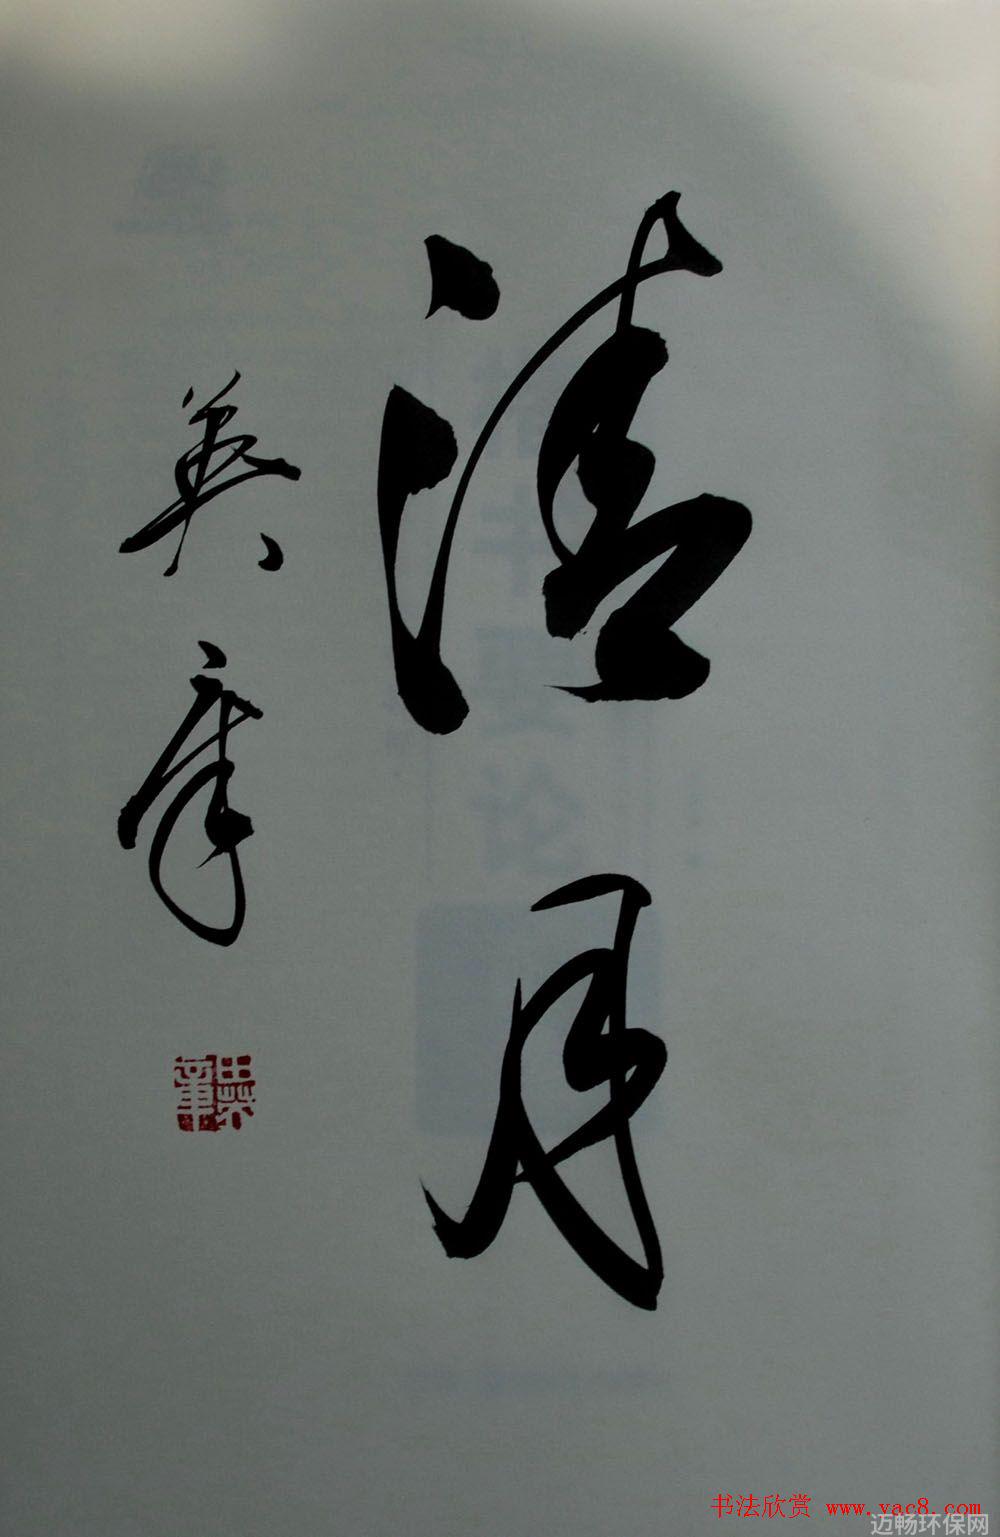 清月
英章
田英章
书法欣赏 www.yac8.com
迈畅环保网